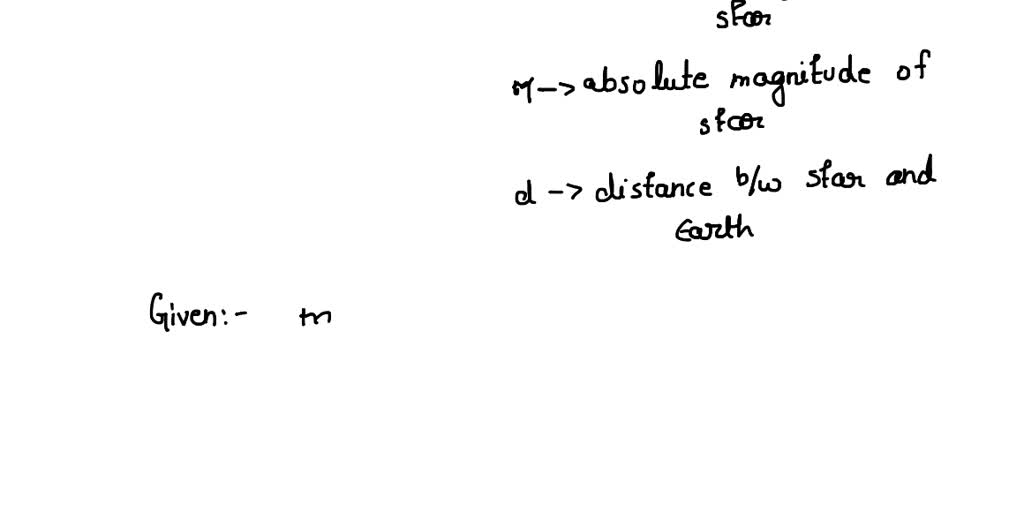 star
M -> absolute magnitude of
star
d -> distance b/w star and
Earth
Given:- m